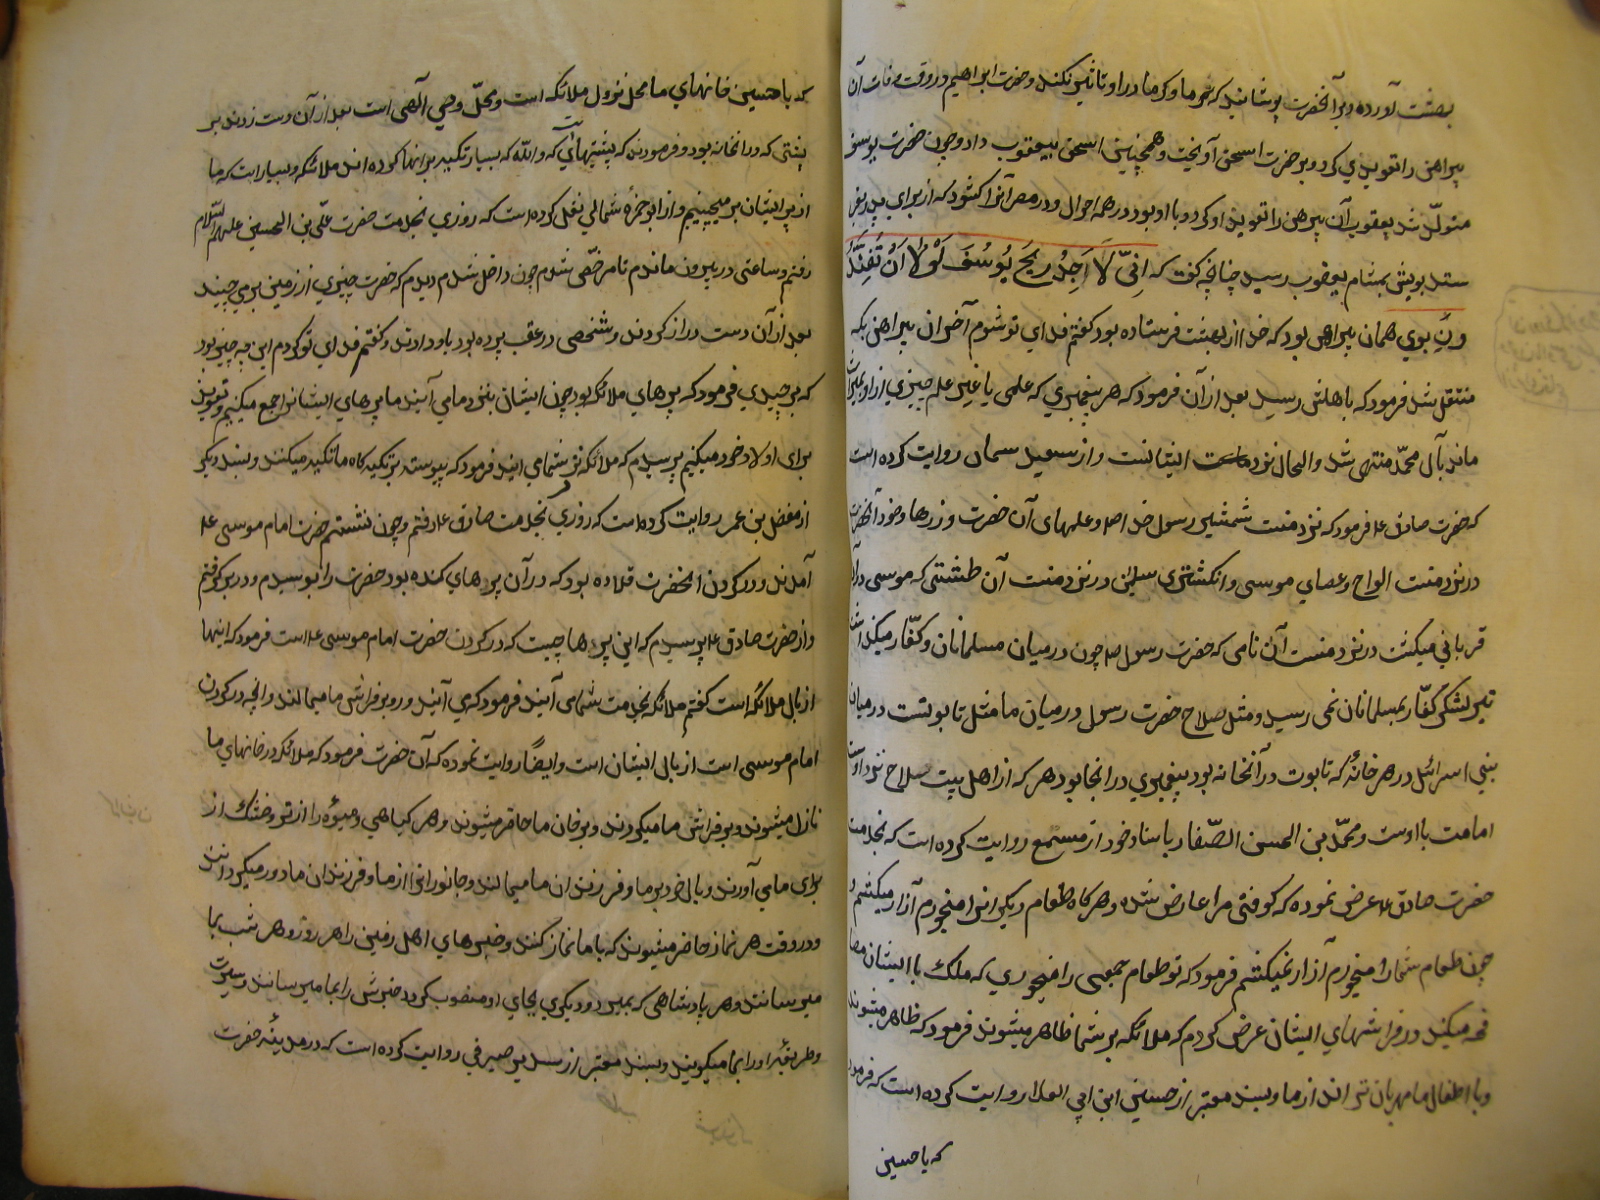 بهشت آورده و بر آنحضرت پوشانید که سرما و گرما در او تاثیر نکند و حضرت ابراهیم در وقت وفات آن
پیراهن را تعویذی کرد و بر حضرت اسحق آویخت و همچنین اسحق بیعقوب داد و چون حضرت یوسف
متولّد شد یعقوب آن پیرهن را تعویذ او کرد و با او بود در همه احوال و در مصر آنرا گشود که از برای پدر بفر
ستد بویش بمشام یعقوب رسید چنانچه گفت که اِنّی لَاَجِدُ رِیحَ یُوسُفَ لَوْلَا اَنْ تُفَنِّدُ
ونِ بوی همان پیراهن بود که خدا از بهشت فرستاده بود گفتم فدای تو شوم آخر آن پیراهن بکه
منتقل شد فرمود که باهلش رسید بعد از آن فرمود که هر پیغمبری که علمی یا غیر علم چیزی از او بمیراث
ماند بآل محمّد منتهی شد والحال نزد ایشانست و از سعید سمان روایت کرده است
که حضرت صادق ع فرمود که نزد منست شمشیر رسول خدا ص و علمهای آن حضرت و زرهها و خود آنحضرت
در نزد منست الواح و عصای موسی و انگشتری سلیمن و نزد منست آن طشتی که موسی در آن
قربانی میکشت در نزد منست آن نامی که حضرت رسول ص چون در میان مسلمانان و کفّار میگذاشت
تیر لشکر کفّار بمسلمانان نمی رسید و مثل صلاح حضرت رسول در میان ما مثل تابوتست در میان
بنی اسرائیل در هر خانهٔ که تابوت در آنخانه بود پیغمبری در انجا بود هر که از اهل بیت سلاح نزد اوست
امامت با اوست و محمّد بن الحسن الصّفار باسناد خود از مسمع روایت کرده است که بخدمت
حضرت صادق ع عرض نموده که کوفتی مرا عارض شده و هر گاه طعام دیگرانرا میخورم آزار میکشم و
چون طعام شما را میخورم آزار نمیکشم فرمود که تو طعام جمعی را میخوری که ملک با ایشان مصا
فحه میکند در فراشهای ایشان عرض کردم که ملائکه بر شما ظاهر میشوند فرمود که ظاهر میشوند
و با اطفال ما مهربان تر اند از ما و بسند معتبر از حسین ابن ابی العلا روایت کرده است که فرمود
که یا حسین
که یا حسین خانهای ما محل نزول ملائکه است و محلّ وحی آلهی است بعد از آن دست زدند بر
پشتی که در انخانه بود و فرمودند که پشتیهائی است که والله که بسیار تکیه بر انها کرده اند ملائکه و بسیار است که ما
از پر ایشان بر میچینیم و از ابو حمزهٔ شمالی نقل کرده است که روزی بخدمت حضرت علّی بن الحسین علیهم السّلام
رفتم و ساعتی در بیرون ماندم تا مرخّص شدم چون داخل شدم دیدم که حضرت چیزی از زمین بر می چینند
بعد از آن دست دراز کردند و شخصی در عقب پرده بود باو دادند و گفتم فدای تو کردم این چه چیز بود
که بر چیدی فرمود که پرهای ملائکه بود چون ایشان بنزد ما می آیند ما پرهای ایشانرا جمع میکنیم و تعویذ
برای اولاد خود میکنیم پرسیدم که ملائکه نزد شما می ایند فرمود که پیوسته بر تکیه گاه ما تکیه میکنند و بسند دیگر
از مفضل بن عمر روایت کرده است که روزی بخدمت صادق ع رفتم و چون نشستم حضرت امام موسی ع
آمدند و در گردن انحضرت قلاده بود که در آن پرهای کنده بود حضرت را بوسیدم و در بر گرفتم
و از حضرت صادق ع پرسیدم که این پرها چیست که در گردن حضرت امام موسی ع است فرمود که اینها
از بال ملائکه است گفتم ملائکه بخدمت شما می آیند فرمود که می آیند و رو بر فراش ما میمالند و انچه در گردن
امام موسی است از بال ایشان است و ایضًا روایت نموده که آن حضرت فرمود که ملائکه در خانهای ما
نازل میشوند و بر فراش ما میگردند و بر خوان ما حاضر میشوند و هر گیاهی و میوهٔ را از تر و خشک از
برای ما می آورند و بال خود بر ما و فرزندان ما میمالند و جانورانرا از ما و فرزندان ما دور میگردانند
و در وقت هر نماز حاضر میشوند که با ما نماز کنند و خبرهای اهل زمین را هر روز و هر شب بما
میرسانند و هر پادشاهی که بمیرد و دیگری بجای او منصوب گردد خبرش را بما میرسانند و سیرت
و طریقهٔ او را بما میگویند و بسند معتبر از سدیر صیرفی روایت کرده است که در مدینه حضرت